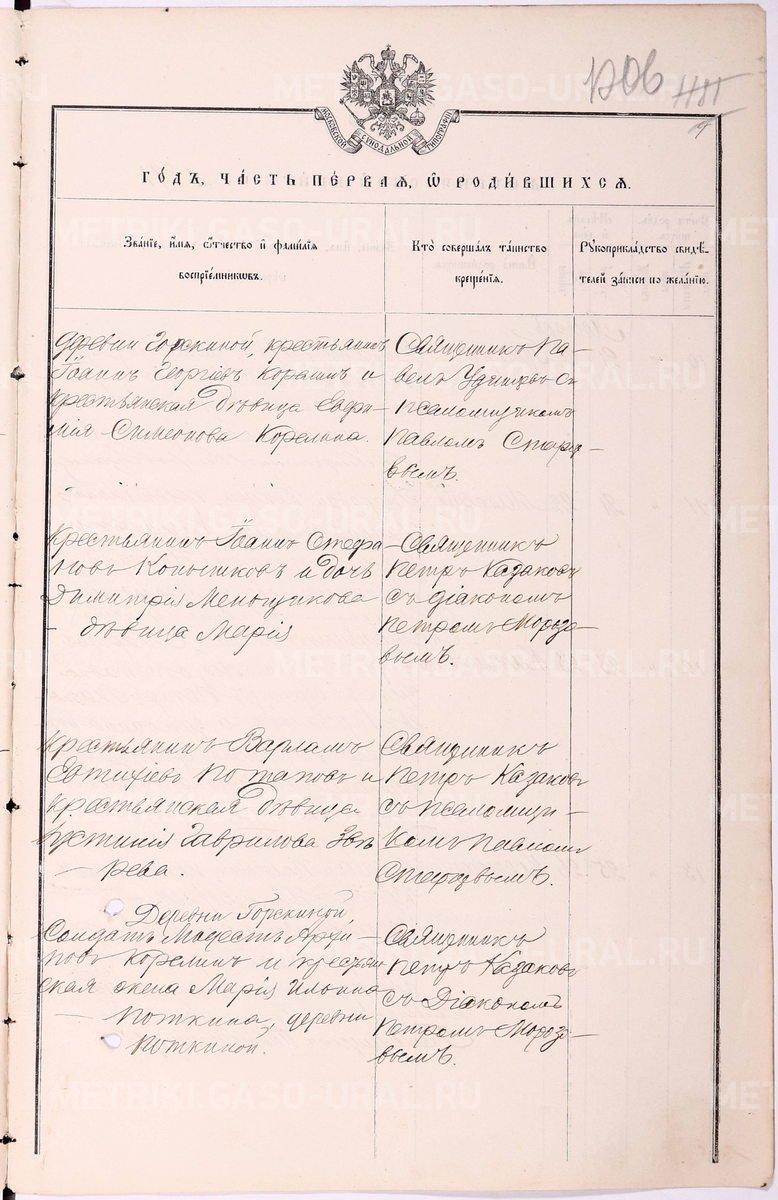 МОСКОВСКОЙ СѴНОДАЛЬНОЙ ТИПОГРАФІИ
ГО́ДЪ, ЧА́СТЬ ПЕ́РВАЯ, Ѡ РОДИ́ВШИХСѦ.
Зва́нїе, и́мя, ѻ́тчество и҆ фами́лїя
воспрїе́мниковъ.
Кто̀ соверша́лъ та́инство
креще́нїя.
Рꙋкоприкла́дство свидѣ́-
телей за́писи по жела́нїю.
деревни Горскиной, крестьянинъ
Іоаннъ Георгіевъ Корелинъ и
крестьянская дѣвица Евфи-
мія Симеонова Корелина.
Священникъ Па-
велъ Удинцевъ съ
псаломщикомъ
Павломъ
вымъ.
Крестьянинъ Іоаннъ Стефа-
новъ Копытковъ и дочь
Димитрія Меньщикова
- дѣвица Марія
Священникъ
Петръ Казаковъ
съ діакономъ
Петромъ Морозо-
вымъ.
Крестьянинъ Варлаамъ
Евтихіевъ Потаповъ и
крестьянская дѣвица
Іустинія Гаврилова Звѣ-
- рева.
Священникъ
Петръ Казаковъ
съ псаломщи-
комъ Павломъ
Деревни Горскиной,
Солдатъ Модестъ Архи-
повъ Корелинъ и крестьян-
ская жена Марія Ильина
- Поткина, деревни
Поткиной.
Священникъ
Петръ Казаковъ
съ Діакономъ
Петромъ Морозо-
вымъ.
METRIKI.GASO-URAL.RU